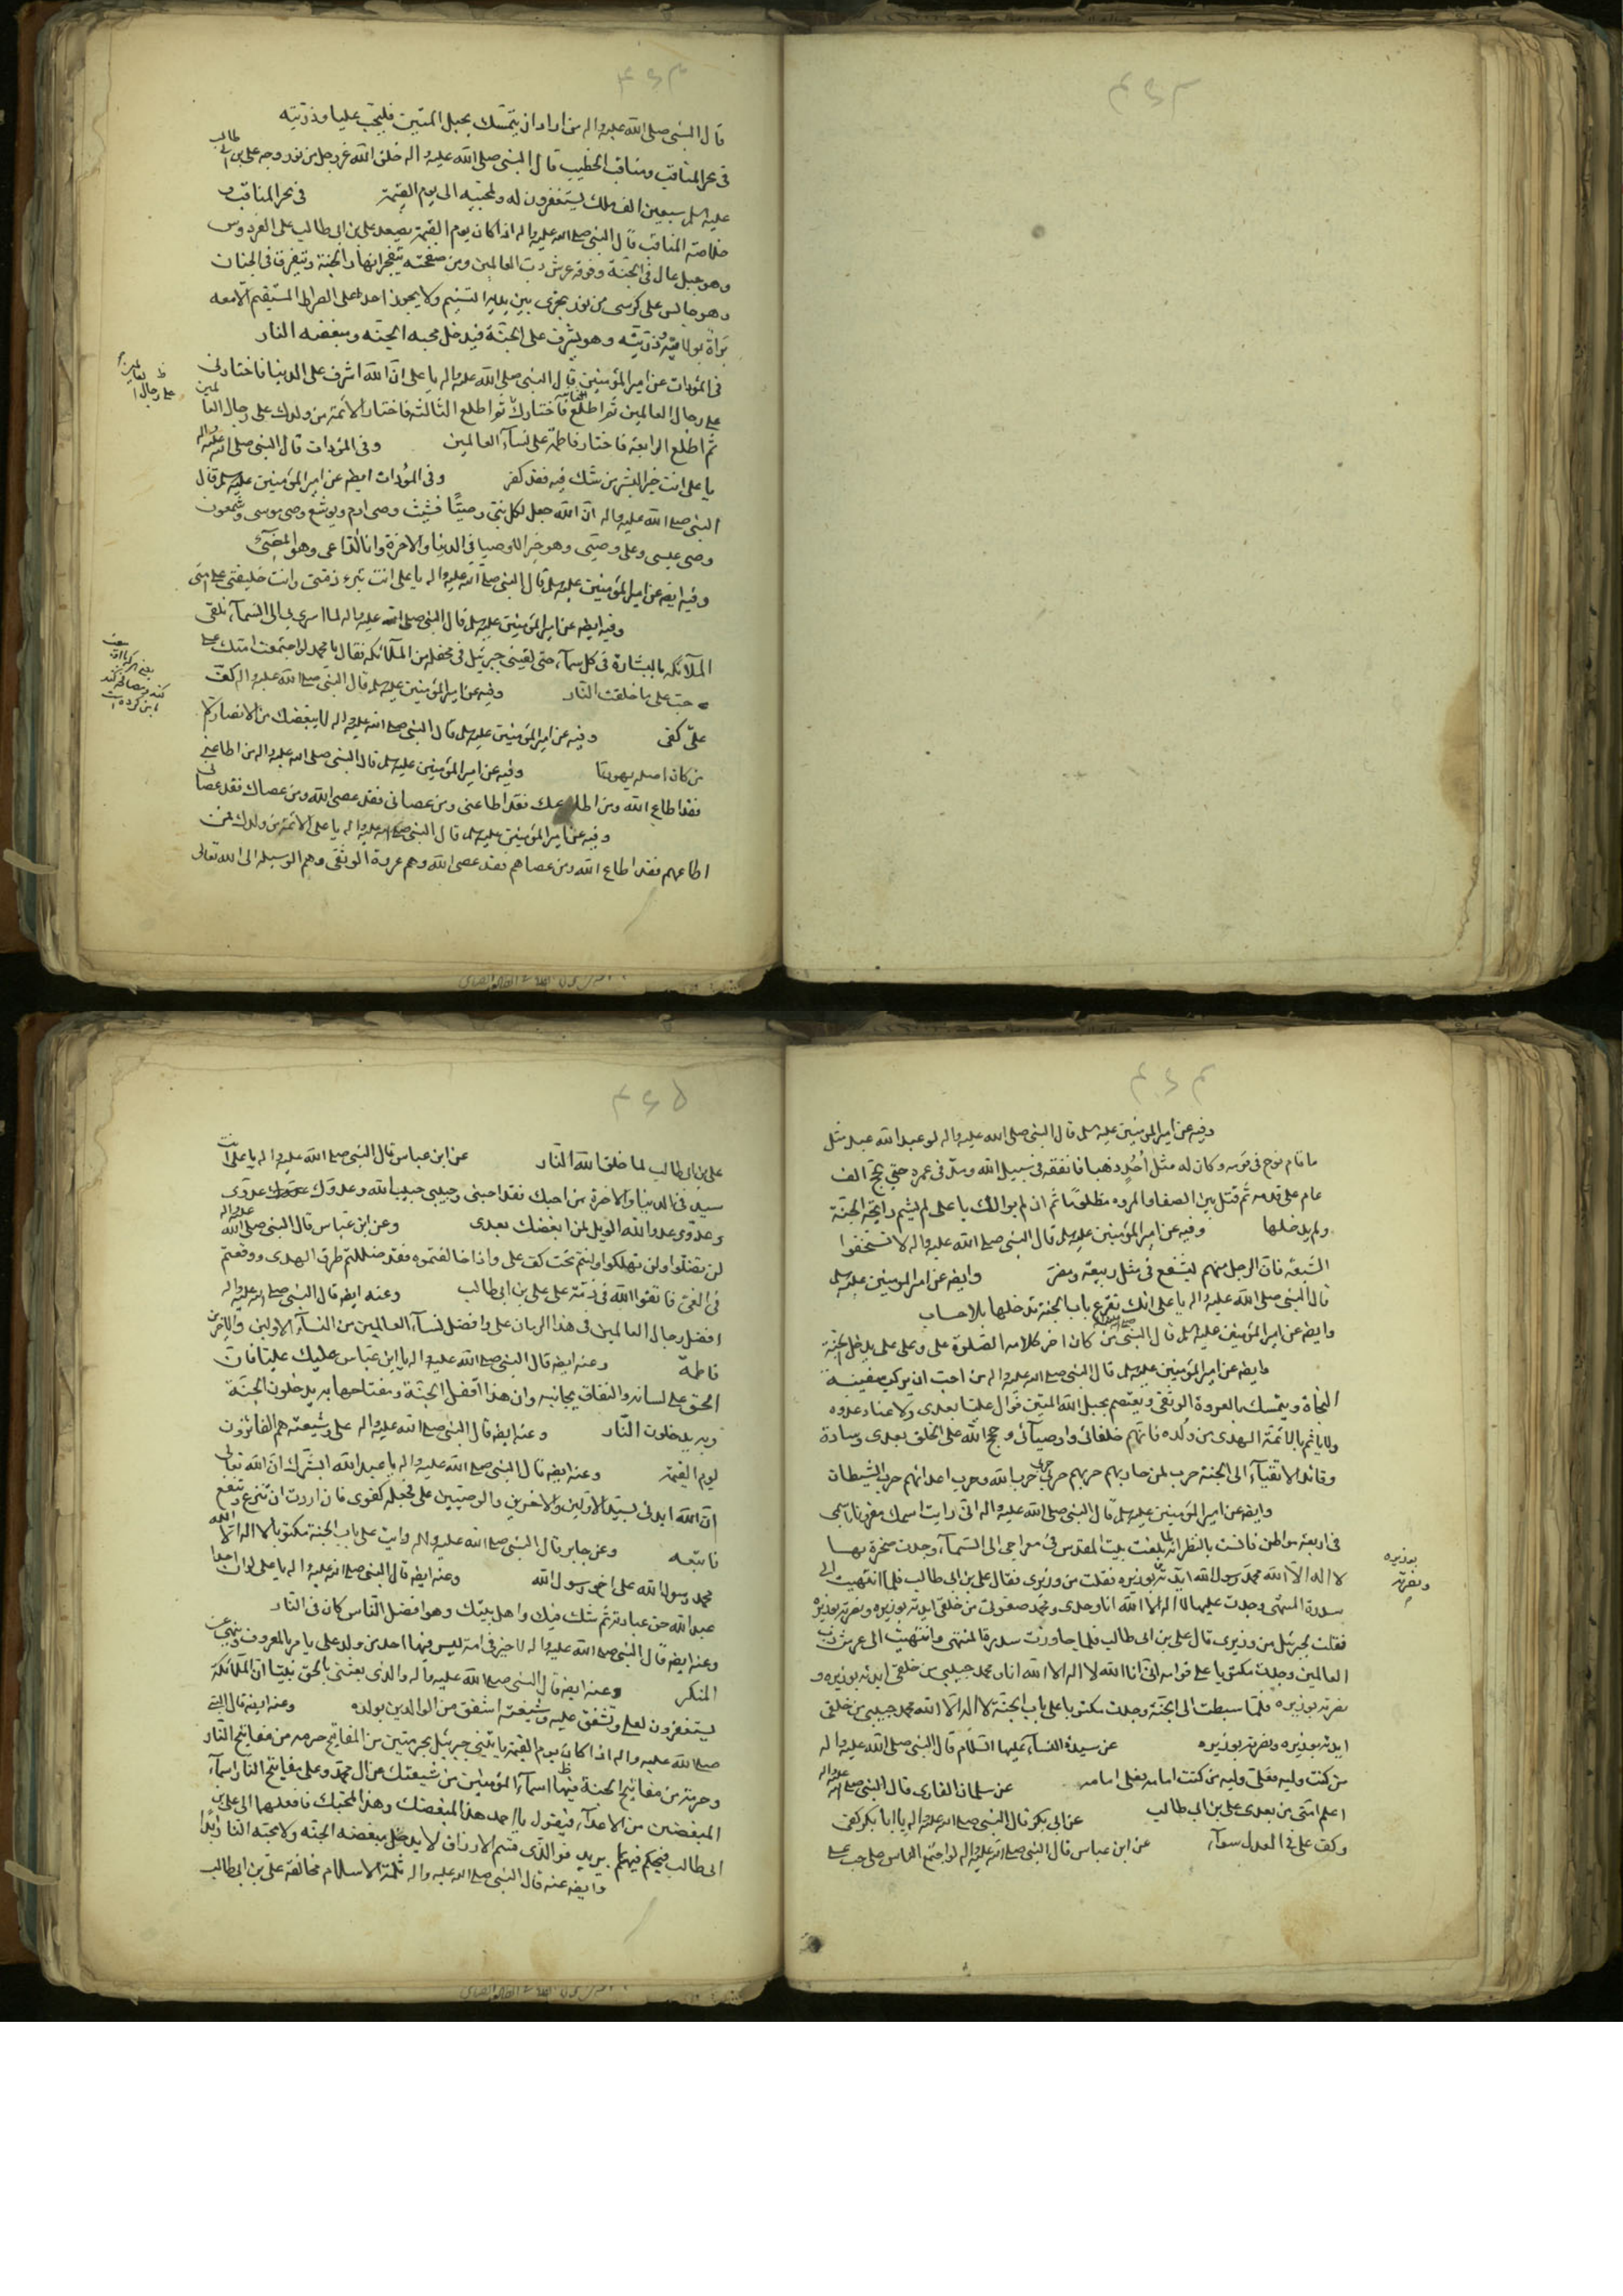 قال النبی صلی الله علیه واله من اراد ان یتمسك بحبل المتین فلیحب علیا وذریته
فی بحر المناقب ومناقب الخطیب قال النبی صلی الله علیه واله خلق الله عز وجل من نور وجه علی بن ابی طالب
علیه السلم سبعین الف ملك یستغفرون له ولمحبیه الی یوم القیمة فی بحر المناقب و
خلاصة المناقب قال النبی صلی الله علیه واله اذا كان یوم القیمة یصعد علی بن ابی طالب علی الفردوس
وهو جبل عال فی الجنة وفوقه عرش رب العالمین ومن صفحته تتفجر انهار الجنة وتتفرق فی الجنان
وهو جالس علی كرسی من نور یجری بین یدیه التسنیم ولا یجوز احد علی الصراط المستقیم الا معه
براة بولایته وذریته وهو یشرف علی الجنة فیدخل محبه الجنة ومبغضه النار
فی المودات عن امیر المؤمنین قال النبی صلی الله علیه واله یا علی ان الله اشرف علی الدنیا فاختارنی
علی رجال العالمین ثم اطلع الثانیة فاختارك ثم اطلع الثالثة فاختار الائمة من ولدك علی رجال العالمین
ثم اطلع الرابعة فاختار فاطمة علی نسآء العالمین وفی المودات قال النبی صلی الله علیه واله
یا علی انت خیر البشر من شك فیه فقد كفر وفی المودات ایضه عن امیر المؤمنین علیه سلم قال
النبی صلی الله علیه واله ان الله جعل لكل نبی وصیا فشیث وصی ادم ویوشع وصی موسی وشمعون
وصی عیسی وعلی وصیی وهو خیر الاوصیا فی الدنیا والاخرة وانا الداعی وهو المضیئ
وفیه ایضه عن امیر المؤمنین علیه سلم قال النبی صلی الله علیه واله یا علی انت تبرء ذمتی وانت خلیفتی علی امتی
وفیه ایضه عن امیر المؤمنین علیه سلم قال النبی صلی الله علیه واله لما اسری بی الی السمآء تلقی
الملآئكة بالبشارة فی كل سمآء حتی لقینی جبرئیل فی محفل من الملآئكة فقال یا محمد لو اجتمعت امتك علی
حب علی ما خلقت النار وفیه عن امیر المؤمنین علیه سلم قال النبی صلی الله علیه واله كف
علی كفی وفیه عن امیر المؤمنین علیه سلم قال النبی صلی الله علیه واله لا یبغضك من الانصار الا
من كان اصله یهودیا وفیه عن امیر المؤمنین علیه سلم قال النبی صلی الله علیه واله من اطاعنی
فقد اطاع الله ومن اطاعك فقد اطاعنی ومن عصانی فقد عصی الله ومن عصاك فقد عصانی
وفیه عن امیر المؤمنین علیه سلم قال النبی صلی الله علیه واله یا علی الائمة من ولدك فمن
اطاعهم فقد اطاع الله ومن عصاهم فقد عصی الله وهم عروة الوثقی وهم الوسیلة الی الله تعالی
وفیه عن امیر المؤمنین علیه سلم قال النبی صلی الله علیه واله لو عبد الله عبد مثل
ما قام نوح فی قومه وكان له مثل أُحُد ذهبا فانفقه فی سبیل الله ومد فی عمره حتی یحج الف
عام علی قدمه ثم قتل بین الصفا والمروه مظلوما ثم ان لم یوالك یا علی لم یشم رایحة الجنة
ولم یدخلها وفیه عن امیر المؤمنین علیه سلم قال النبی صلی الله علیه واله لا تستخفوا
الشیعه فان الرجل منهم لیشفع فی مثل ربیعة ومضر وایضه عن امیر المومنین علیه سلم
قال النبی صلی الله علیه واله یا علی انك تقرع باب الجنة تدخلها بلا حساب
وایضه عن امیر المؤمنین علیه سلم قال النبی من كان اخر كلامه الصلوة علی وعلی علی یدخل الجنة
وایضه عن امیر المؤمنین علیه سلم قال النبی صلی الله علیه واله من احب ان یركب سفینة
النجاة ویتمسك بالعروة الوثقی ویعتصم بحبل الله المتین فوال علیا بعدی ولا عناد عدوه
ولیاتم بالائمة الهدی من ولده فانهم خلفائی واوصیآئی وحجج الله علی الخلق بعدی وسادة
وقائد الاتقیآء الی الجنة حرب لمن حاربهم حزبهم حزبی حزب الله وحزب اعدائهم حزب الشیطان
وایضه عن امیر المؤمنین علیه سلم قال النبی صلی الله علیه واله انی رایت اسمك مقرونا باسمی
فی اربعة مواطن فانست بالنظر لما بلغت بیت المقدس فی معراجی الی السمآء وجدت صخرة بها
لا اله الا الله محمد رسول الله ایدته بوزیره فقلت من وزیری فقال علی بن ابی طالب فلما انتهیت الی
سدرة المنتهی وجدت علیها لا اله الا الله انا وحدی ومحمد صفوتی من خلقی ایدته بوزیره ونصرته بوزیره
فقلت لجبرئیل من وزیری قال علی بن ابی طالب فلما جاوزت سدرة المنتهی وانتهیت الی عرش رب
العالمین وجدت مكتوبا علی قوائمه انی انا الله لا اله الا الله انا ومحمد حبیبی من خلقی ایدته بوزیره و
نصرته بوزیره فلما هبطت الی الجنة وجدت مكتوبا علی باب الجنة لا اله الا الله محمد حبیبی من خلقی
ایدته بوزیره ونصرته بوزیره عن سیدة النسآء علیها السلام قال النبی صلی الله علیه واله
من كنت ولیه فعلی ولیه من كنت امامه فعلی امامه عن سلمان الفارسی قال النبی صلی الله علیه واله
اعلم امتی من بعدی علی بن ابی طالب عن ابی بكر قال النبی صلی الله علیه واله یا ابا بكر كفی
وكف علی فی العدل سوآء عن ابن عباس قال النبی صلی الله علیه واله لو اجتمع الناس علی حب علی
بوزیره
ونصرته
علی بن ابی طالب لما خلق الله النار عن ابن عباس قال النبی صلی الله علیه واله یا علی انت
سید فی الدنیا والاخرة من احبك فقد احبنی وحبیبی حبیب الله وعدوك عدوی
وعدوی عدو الله الویل لمن ابغضك بعدی وعن ابن عباس قال النبی صلی الله علیه واله
لن تضلوا ولن تهلكوا وانتم تحت كف علی واذا خالفتموه فقد ضللتم طرق الهدی ووقعتم
فی الغی فاتقوا الله فی ذمة علی علی بن ابی طالب وعنه ایضه قال النبی صلی الله علیه واله
افضل رجال العالمین فی هذا الزمان علی وافضل نسآء العالمین من النسآء الاولین والاخرین
فاطمة وعنه ایضه قال النبی صلی الله علیه واله یا ابن عباس علیك علیا فان
الحق علی لسانه والنفاق بجانبه وان هذا اقفل الجنة ومفتاحها به یدخلون الجنة
وبه یدخلون النار وعنه ایضه قال النبی صلی الله علیه واله علی وشیعته هم الفائزون
یوم القیمة وعنه ایضه قال النبی صلی الله علیه واله یا عبد الله ابشرك ان الله تعالی
ان الله ایدنی بسید الاولین والاخرین والوصیین علی فجعله كفوی فان اردت ان تتبرع وتنفع
فاتبعه وعن جابر قال النبی صلی الله علیه واله رایت علی باب الجنة مكتوبا لا اله الا الله
محمد رسول الله علی اخو رسول الله وعنه ایضه قال النبی صلی الله علیه واله یا علی لو ان احدا
عبد الله حق عبادته ثم شك فیك واهل بیتك وهو افضل الناس كان فی النار
وعنه ایضه قال النبی صلی الله علیه واله لا خیر فی امة لیس فیها احد من ولد علی یامر بالمعروف وینهی عن
المنكر وعنه ایضه قال النبی صلی الله علیه واله والذی بعثنی بالحق نبیا ان الملآئكة
یستغفرون لعلی وتشفق علیه وشیعته اشفق من الوالدین بولده وعنه ایضه قال النبی
صلی الله علیه واله اذا كان یوم القیمة یاتینی جبرئیل بحزمتین من المفاتیح حزمة من مفاتیح النار
وحزمة من مفاتیح الجنة فیها اسمآء المؤمنین من شیعتك من ال محمد وعلی مفاتیح النار اسمآء
المبغضین من الاعدآء فیقول یا احمد هذا لمبغضك وهذا لمحبك فادفعهما الی علی بن
ابی طالب فیحكم فیهم بما یرید فو الذی قسم الارزاق لا یدخل مبغضه الجنة ولا محبه النار ابدا
وایضه عنه قال النبی صلی الله علیه واله ثلمة الاسلام مخالفة علی بن ابی طالب